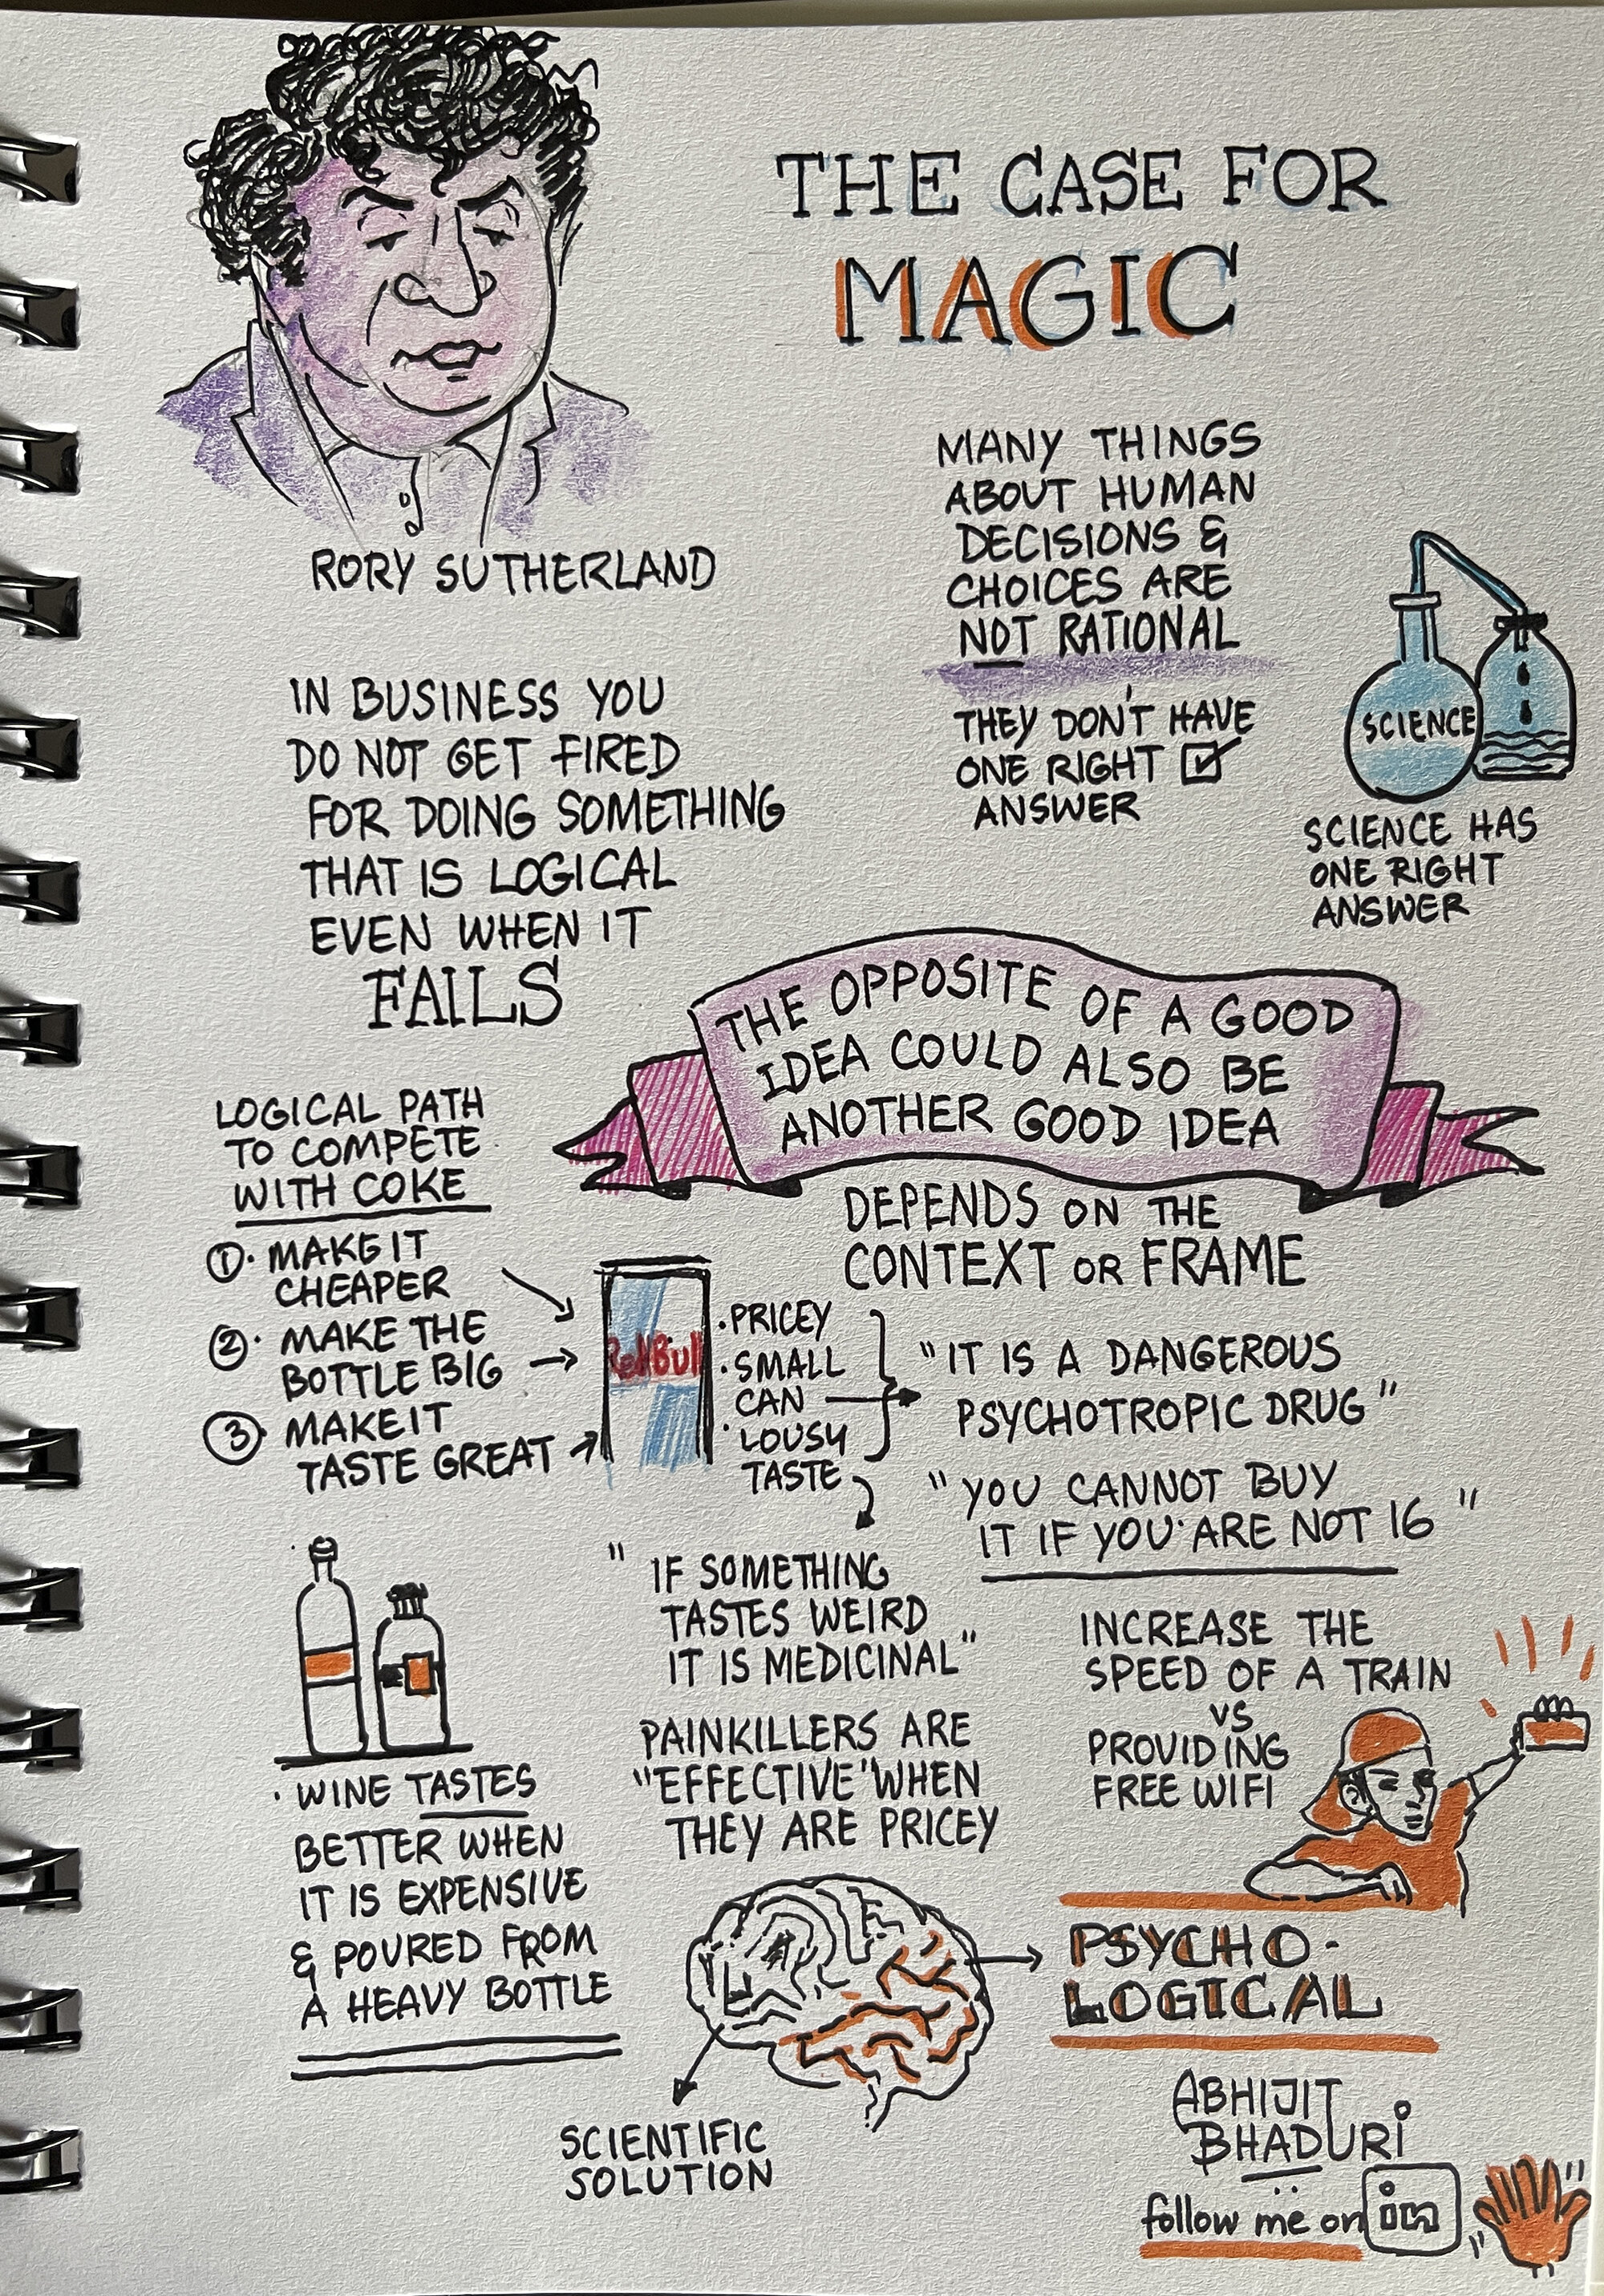 THE CASE FOR
MAGIC
RORY SUTHERLAND
MANY THINGS
ABOUT HUMAN
DECISIONS &
CHOICES ARE
NOT RATIONAL
THEY DON'T HAVE
ONE RIGHT
ANSWER
SCIENCE
SCIENCE HAS
ONE RIGHT
ANSWER
IN BUSINESS YOU
DO NOT GET FIRED
FOR DOING SOMETHING
THAT IS LOGICAL
EVEN WHEN IT
FAILS
THE OPPOSITE OF A GOOD
IDEA COULD ALSO BE
ANOTHER GOOD IDEA
DEPENDS ON THE
CONTEXT OR FRAME
LOGICAL PATH
TO COMPETE
WITH COKE
1. MAKE IT
CHEAPER
2. MAKE THE
BOTTLE BIG
3. MAKE IT
TASTE GREAT
RedBull
· PRICEY
· SMALL
CAN
· LOUSY
TASTE
"IT IS A DANGEROUS
PSYCHOTROPIC DRUG"
"YOU CANNOT BUY
IT IF YOU ARE NOT 16"
"IF SOMETHING
TASTES WEIRD
IT IS MEDICINAL"
PAINKILLERS ARE
"EFFECTIVE" WHEN
THEY ARE PRICEY
INCREASE THE
SPEED OF A TRAIN
VS
PROVIDING
FREE WIFI
· WINE TASTES
BETTER WHEN
IT IS EXPENSIVE
& POURED FROM
A HEAVY BOTTLE
PSYCHO-
LOGICAL
SCIENTIFIC
SOLUTION
ABHIJIT
BHADURI
follow me on in